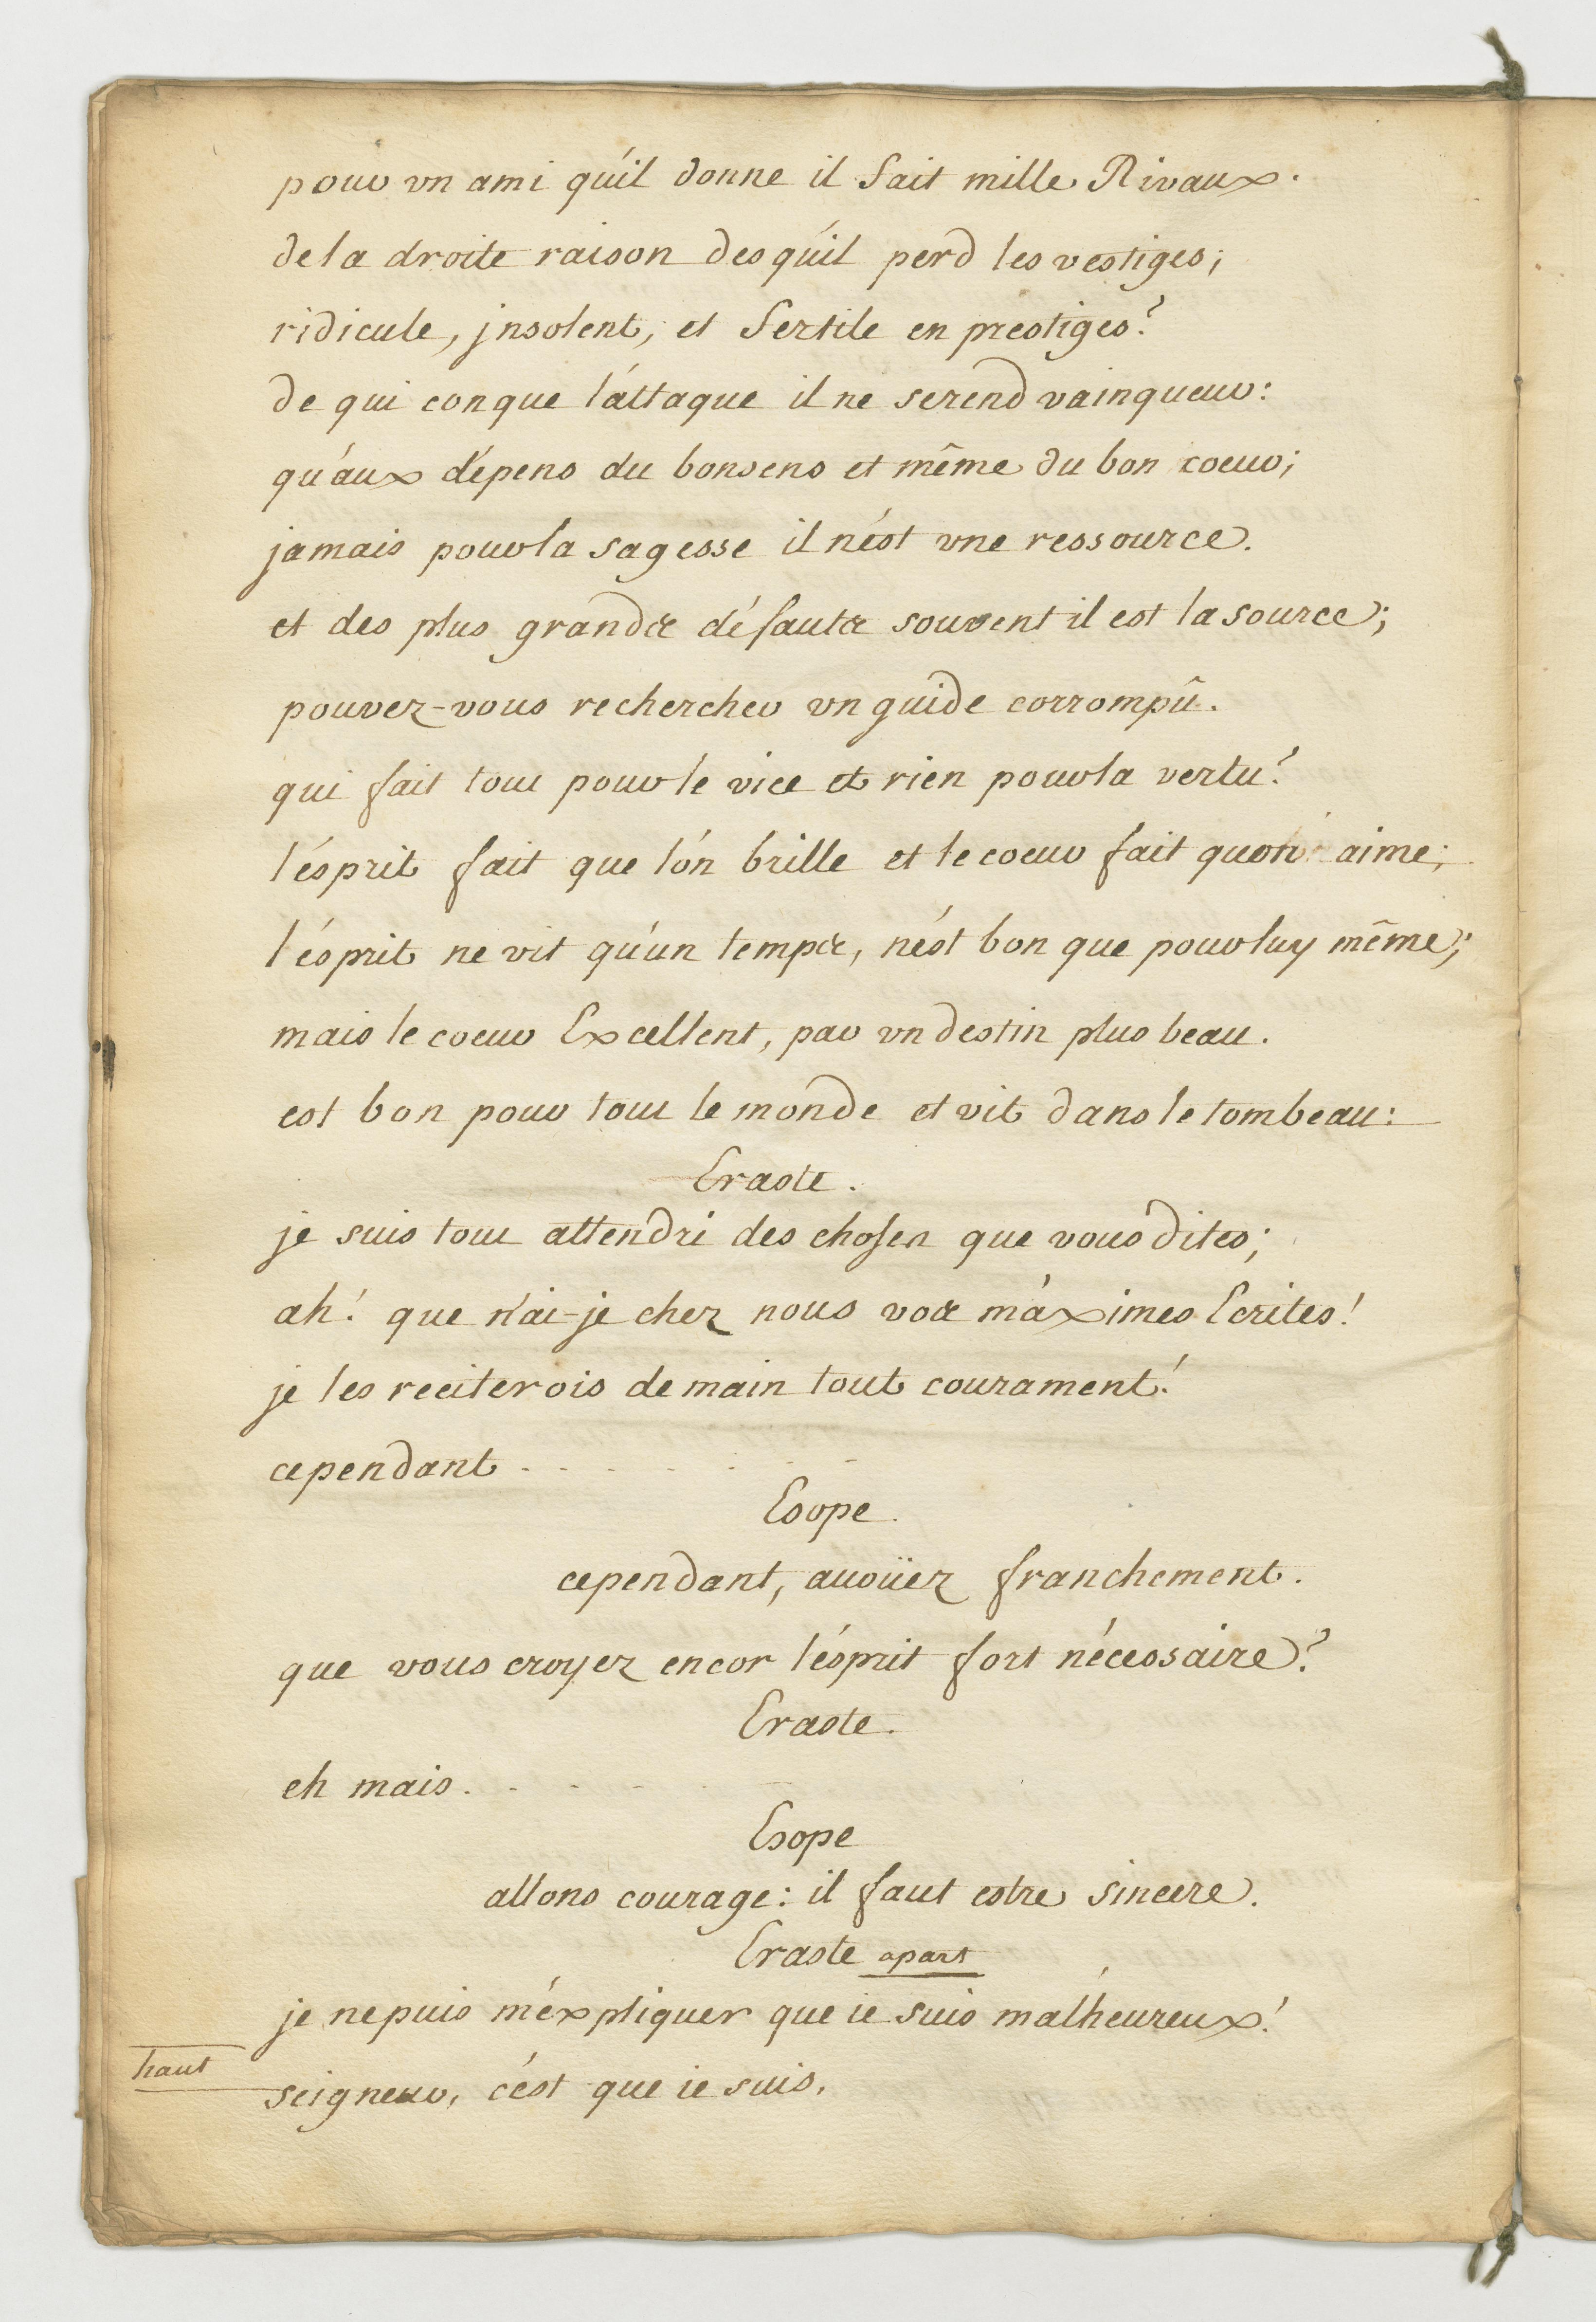 pour vn ami qu'il donne il fait mille Rivaux.
de la droite raison des qu'il perd les vestiges;
ridicule, jnsolent, et fertile en prestiges?
de qui conque l'attaque il ne se rend vainqueur:
qu'aux dépens du bonsens et même du bon coeur;
jamais pour la sagesse il n'est vne ressource.
et des plus grands défauts souvent il est la source;
pouvez-vous rechercher vn guide corrompû.
qui fait tout pour le vice et rien pour la vertu?
l'ésprit fait que l'on brille et le coeur fait quon aime;
l'ésprit ne vit qu'un temps, n'est bon que pour luy même;
mais le coeur Excellent, par vn destin plus beau.
est bon pour tout le monde et vit dans le tombeau:
Eraste.
je suis tout attendri des choses que vous dites;
ah! que n'ai-je chez nous vos máximes Ecrites!
je les reciterois demain tout courament!
cependant - - - - - - -
Esope.
cependant, auoüez franchement.
que vous croyez encor l'ésprit fort nécessaire?
Eraste.
eh mais. - - - -
Esope
allons courage: il faut estre sincere.
Eraste apart
je ne puis m'éxpliquer que ie suis malheureux!
haut
seigneur, c'est que ie suis,